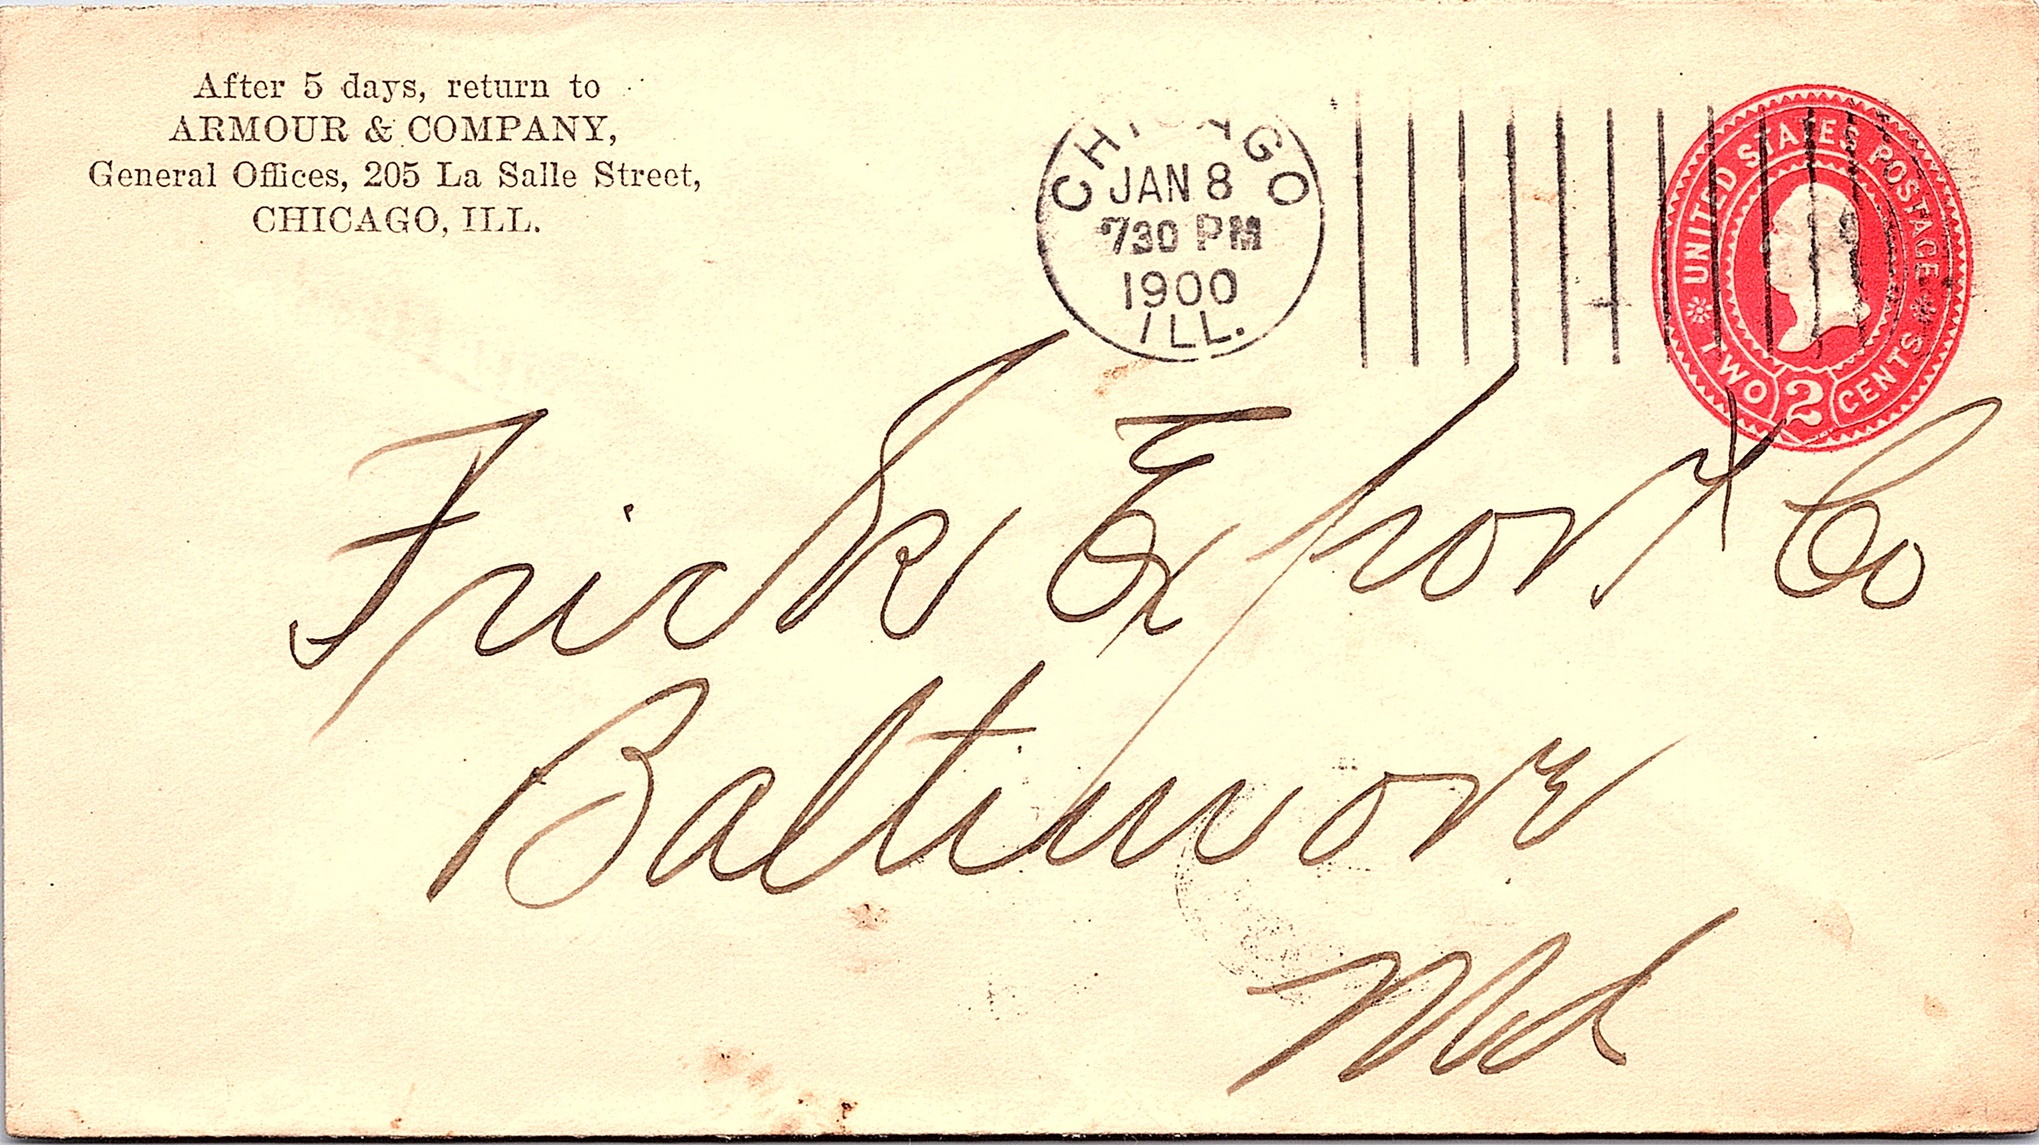 After 5 days, return to
ARMOUR & COMPANY,
General Offices, 205 La Salle Street,
CHICAGO, ILL.
CHICAGO
JAN 8
730 PM
1900
ILL.
UNITED STATES POSTAGE
TWO 2 CENTS
Frick Export Co
Baltimore
Md